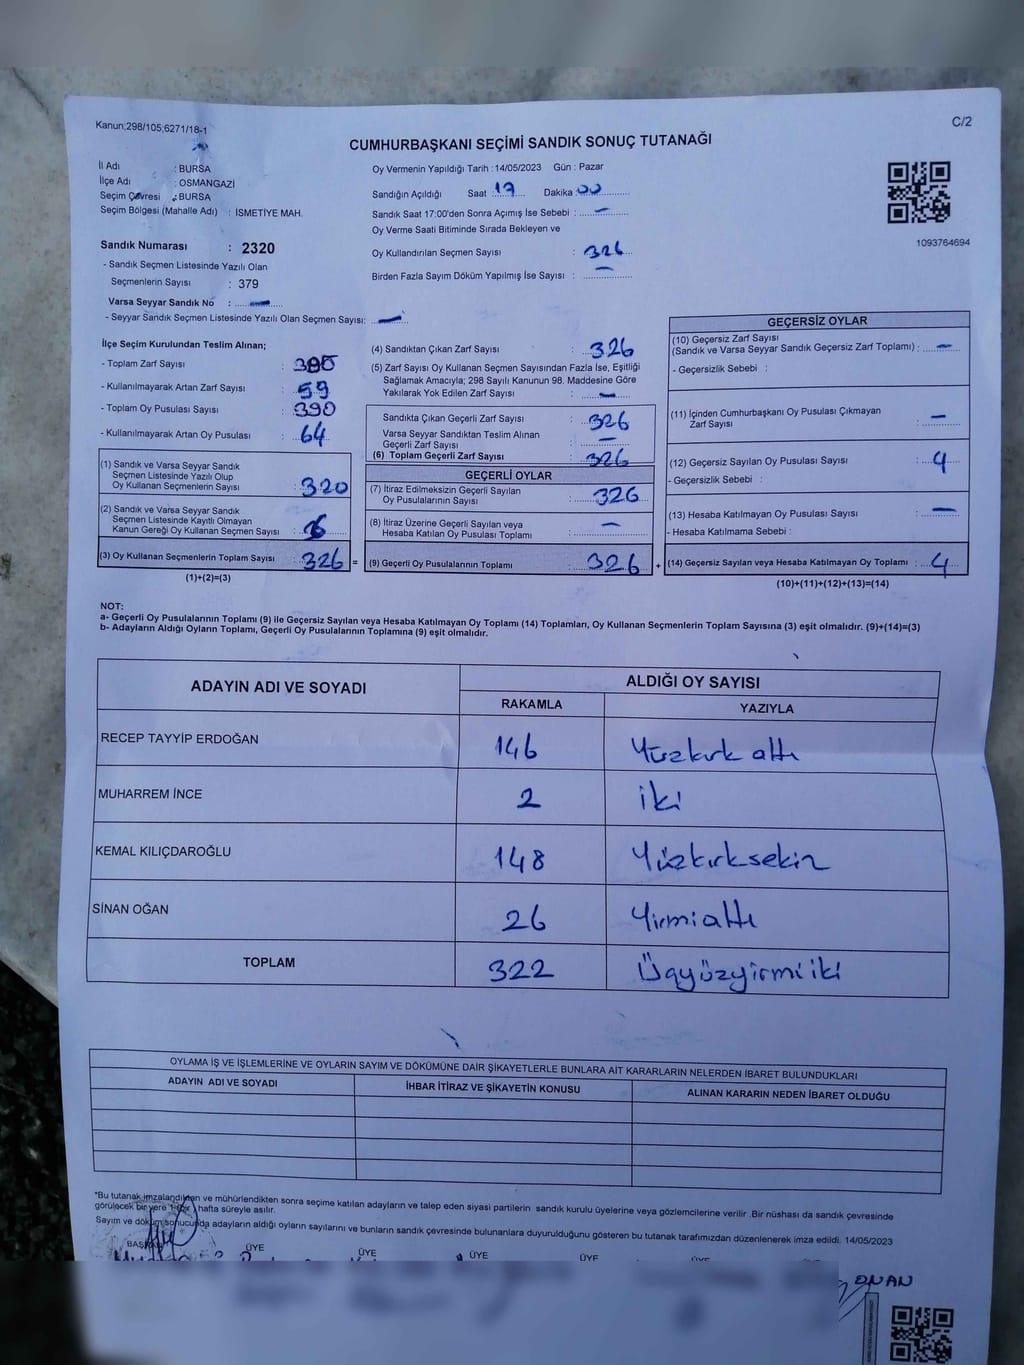 Kanun;298/105;6271/18-1
C/2
CUMHURBAŞKANI SEÇİMİ SANDIK SONUÇ TUTANAĞI
İl Adı : BURSA
İlçe Adı : OSMANGAZİ
Seçim Çevresi : BURSA
Seçim Bölgesi (Mahalle Adı) : İSMETİYE MAH.
Oy Vermenin Yapıldığı Tarih :14/05/2023 Gün : Pazar
Sandığın Açıldığı Saat 17 Dakika 00
Sandık Saat 17:00'den Sonra Açımış İse Sebebi : —
Oy Verme Saati Bitiminde Sırada Bekleyen ve
Oy Kullandırılan Seçmen Sayısı : 326
Birden Fazla Sayım Döküm Yapılmış İse Sayısı : —
1093764694
Sandık Numarası : 2320
- Sandık Seçmen Listesinde Yazılı Olan
Seçmenlerin Sayısı : 379
Varsa Seyyar Sandık No : —
- Seyyar Sandık Seçmen Listesinde Yazılı Olan Seçmen Sayısı: —
İlçe Seçim Kurulundan Teslim Alınan;
- Toplam Zarf Sayısı : 385
- Kullanılmayarak Artan Zarf Sayısı : 59
- Toplam Oy Pusulası Sayısı : 390
- Kullanılmayarak Artan Oy Pusulası : 64
(1) Sandık ve Varsa Seyyar Sandık
Seçmen Listesinde Yazılı Olup
Oy Kullanan Seçmenlerin Sayısı : 320
(2) Sandık ve Varsa Seyyar Sandık
Seçmen Listesinde Kayıtlı Olmayan
Kanun Gereği Oy Kullanan Seçmen Sayısı : 6
(3) Oy Kullanan Seçmenlerin Toplam Sayısı : 326 =
(1)+(2)=(3)
(4) Sandıktan Çıkan Zarf Sayısı : 326
(5) Zarf Sayısı Oy Kullanan Seçmen Sayısından Fazla İse, Eşitliği
Sağlamak Amacıyla; 298 Sayılı Kanunun 98. Maddesine Göre
Yakılarak Yok Edilen Zarf Sayısı : —
Sandıkta Çıkan Geçerli Zarf Sayısı : 326
Varsa Seyyar Sandıktan Teslim Alınan
Geçerli Zarf Sayısı : —
(6) Toplam Geçerli Zarf Sayısı : 326
GEÇERLİ OYLAR
(7) İtiraz Edilmeksizin Geçerli Sayılan
Oy Pusulalarının Sayısı : 326
(8) İtiraz Üzerine Geçerli Sayılan veya
Hesaba Katılan Oy Pusulası Toplamı : —
(9) Geçerli Oy Pusulalarının Toplamı : 326 +
GEÇERSİZ OYLAR
(10) Geçersiz Zarf Sayısı
(Sandık ve Varsa Seyyar Sandık Geçersiz Zarf Toplamı) : —
- Geçersizlik Sebebi :
(11) İçinden Cumhurbaşkanı Oy Pusulası Çıkmayan
Zarf Sayısı : —
(12) Geçersiz Sayılan Oy Pusulası Sayısı : 4
- Geçersizlik Sebebi :
(13) Hesaba Katılmayan Oy Pusulası Sayısı : —
- Hesaba Katılmama Sebebi :
(14) Geçersiz Sayılan veya Hesaba Katılmayan Oy Toplamı : 4
(10)+(11)+(12)+(13)=(14)
NOT:
a- Geçerli Oy Pusulalarının Toplamı (9) ile Geçersiz Sayılan veya Hesaba Katılmayan Oy Toplamı (14) Toplamları, Oy Kullanan Seçmenlerin Toplam Sayısına (3) eşit olmalıdır. (9)+(14)=(3)
b- Adayların Aldığı Oyların Toplamı, Geçerli Oy Pusulalarının Toplamına (9) eşit olmalıdır.
ADAYIN ADI VE SOYADI
ALDIĞI OY SAYISI
RAKAMLA YAZIYLA
RECEP TAYYİP ERDOĞAN 146 Yüzkırk altı
MUHARREM İNCE 2 iki
KEMAL KILIÇDAROĞLU 148 Yüzkırksekiz
SİNAN OĞAN 26 Yirmialtı
TOPLAM 322 Üçyüzyirmiiki
OYLAMA İŞ VE İŞLEMLERİNE VE OYLARIN SAYIM VE DÖKÜMÜNE DAİR ŞİKAYETLERLE BUNLARA AİT KARARLARIN NELERDEN İBARET BULUNDUKLARI
ADAYIN ADI VE SOYADI İHBAR İTİRAZ VE ŞİKAYETİN KONUSU ALINAN KARARIN NEDEN İBARET OLDUĞU
*Bu tutanak imzalandıktan ve mühürlendikten sonra seçime katılan adayların ve talep eden siyasi partilerin sandık kurulu üyelerine veya gözlemcilerine verilir .Bir nüshası da sandık çevresinde
görülecek bir yere 1 (bir) hafta süreyle asılır.
Sayım ve döküm sonucunda adayların aldığı oyların sayılarını ve bunların sandık çevresinde bulunanlara duyurulduğunu gösteren bu tutanak tarafımızdan düzenlenerek imza edildi. 14/05/2023
BAŞKAN ÜYE ÜYE ÜYE ÜYE ÜYE ÜYE